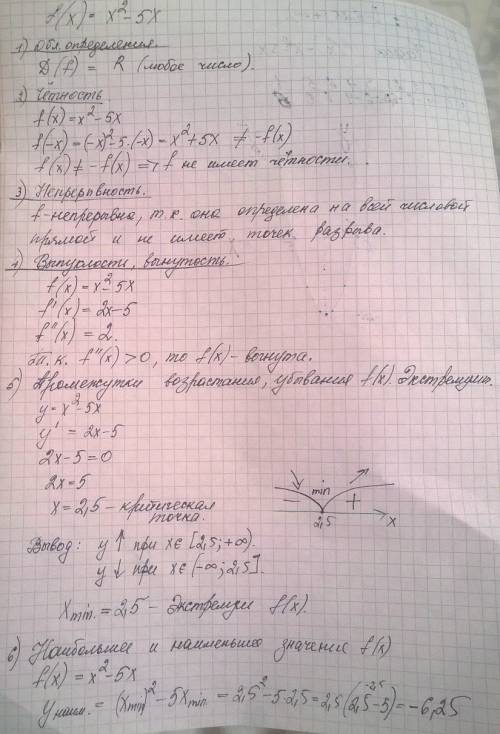 f(x) = x² - 5x
1) Обл. определения.
D(f) = R (любое число).
2) Чётность
f(x) = x² - 5x
f(-x) = (-x)² - 5·(-x) = x² + 5x ≠ -f(x)
f(x) ≠ -f(x) => f не имеет чётности.
3) Непрерывность.
f - непрерывна, т.к. она определена на всей числовой
прямой и не имеет точек разрыва.
4) Выпуклости, вогнутость.
f(x) = x² - 5x
f'(x) = 2x - 5
f''(x) = 2.
Т.к. f''(x) > 0, то f(x) - вогнута.
5) Промежутки возрастания, убывания f(x). Экстремумы.
y = x² - 5x
y' = 2x - 5
2x - 5 = 0
2x = 5
x = 2,5 - критическая
точка.
min
- +
2,5 x
Вывод: y ↑ при x ∈ [2,5; +∞).
y ↓ при x ∈ (-∞; 2,5].
x min. = 2,5 - Экстремум f(x).
6) Наибольшее и наименьшее значения f(x)
f(x) = x² - 5x
y наим. = (x min)² - 5x min. = 2,5² - 5·2,5 = 2,5(2,5 - 5) = -6,25
-2,5